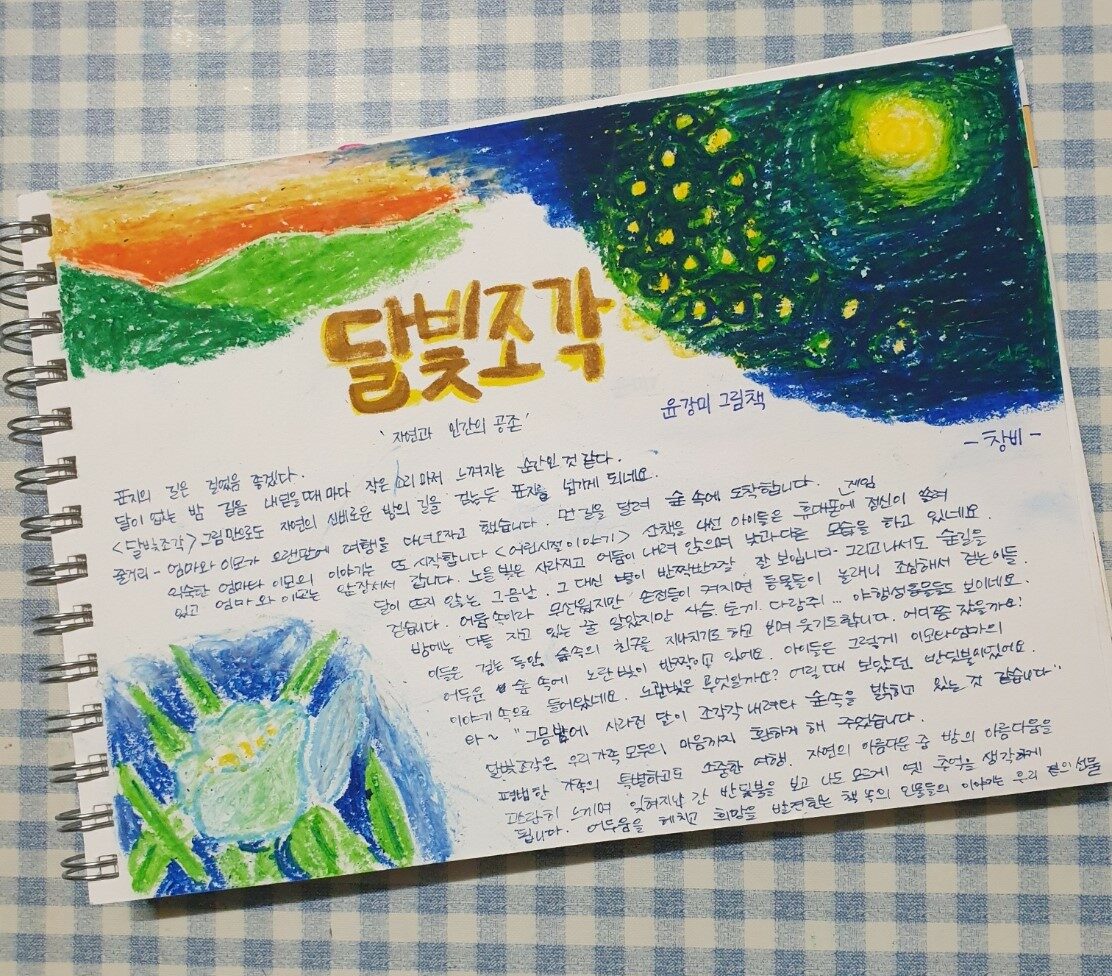 달빛조각
윤강미 그림책
'자연과 인간의 공존'
- 창비 -
표지의 길은 걸었음 좋겠다.
달이 뜨는 밤 길을 내딛을때마다 작은 소리마저 느껴지는 순간인 것 같다.
<달빛조각> 그림만으로도 자연의 신비로운 밤의 길을 걷는듯 표지를 넘기게 되네요.
줄거리 - 엄마와 이모가 오랜만에 여행을 다녀오자고 했습니다. 먼길을 달려 숲 속에 도착합니다. 게임
익숙한 엄마와 이모의 이야기는 또 시작합니다 <어린시절이야기> 산책을 나선 아이들은 휴대폰에 정신이 쏠려
있고 엄마와 이모는 앞장서서 갑니다. 노을빛은 사라지고 어둠이 내려 앉으며 낮과 다른 모습을 하고 있네요.
달이 뜨지 않는 그믐날. 그 대신 별이 반짝반짝 잘 보입니다. 그리고나서도 숲길을
걷습니다. 어둠속이라 무서웠지만 손전등이 켜지면 동물들이 놀래니 조심해서 걷는이들.
밤에는 다들 자고 있는 줄 알았지만 사슴 토끼 다람쥐 ... 야행성동물들도 보이네요.
이들은 걷는 동안 숲속의 친구를 지나치기도 하고 보며 웃기도합니다. 어디쯤 왔을까요?
어두운 숲 속에 노란빛이 반짝이고 있어요. 아이들은 그렇게 이모와엄마의
이야기 속으로 들어왔네요. 노란빛은 무엇일까요? 어릴때 보았던 반딧불이였어요.
와~ "그믐밤에 사라진 달이 조각각 내려와 숲속을 밝히고 있는 것 같습니다"
달빛조각은 우리가족 모두의 마음까지 환하게 해 주었습니다.
평범한 가족의 특별하고도 소중한 여행. 자연의 아름다운 중 밤의 아름다움을
느끼며 잊혀지난 간 반딧불을 보고 나도 모르게 옛 추억을 생각하게
됩니다. 어두움을 헤치고 희망을 발견하는 책 속의 인물들의 이야기는 우리 곁의 선물